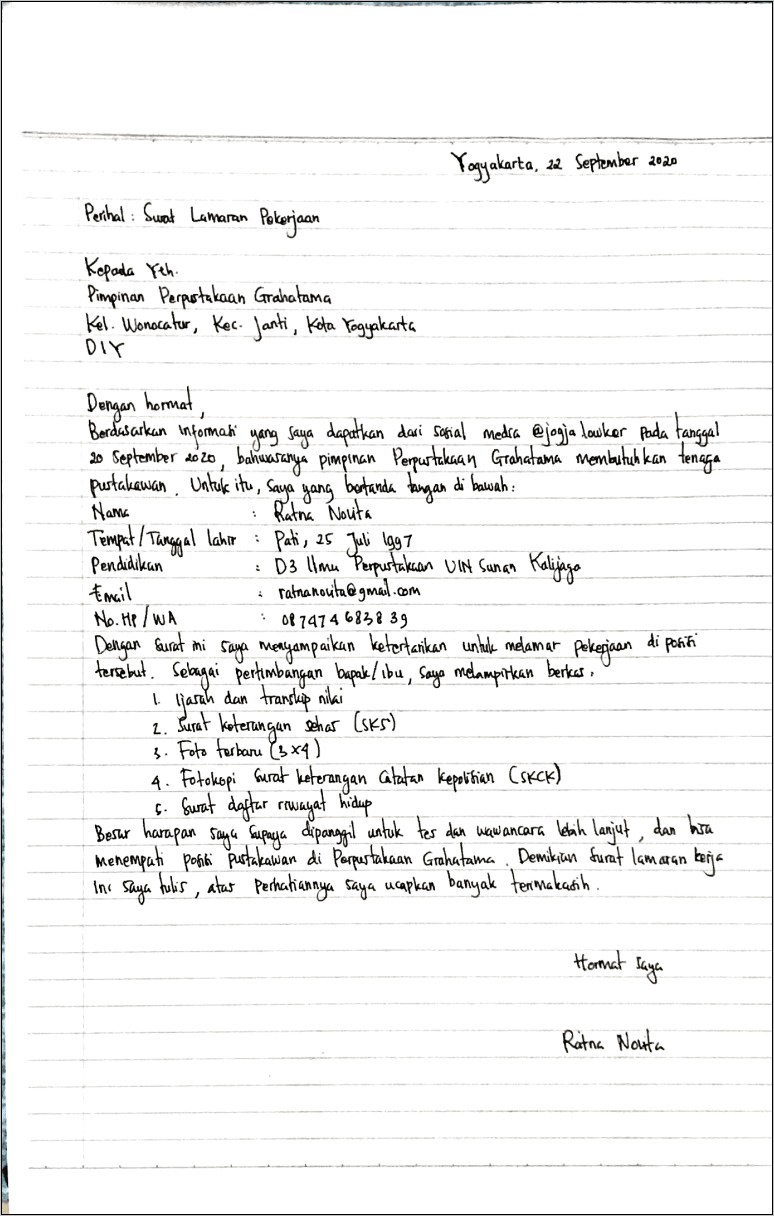 Yogyakarta, 22 September 2020
Perihal : Surat Lamaran Pekerjaan
Kepada Yth.
Pimpinan Perpustakaan Grahatama
Kel. Wonocatur, Kec. Janti, Kota Yogyakarta
DIY
Dengan hormat,
Berdasarkan informasi yang saya dapatkan dari sosial media @jogjalowker pada tanggal
20 September 2020, bahwasanya pimpinan Perpustakaan Grahatama membutuhkan tenaga
pustakawan. Untuk itu, saya yang bertanda tangan di bawah :
Nama : Ratna Novita
Tempat/Tanggal lahir : Pati, 25 Juli 1997
Pendidikan : D3 Ilmu Perpustakaan UIN Sunan Kalijaga
Email : ratnanovita@gmail.com
No.HP/WA : 087474683839
Dengan surat ini saya menyampaikan ketertarikan untuk melamar pekerjaan di posisi
tersebut. Sebagai pertimbangan bapak/ibu, saya melampirkan berkas.
1. Ijasah dan transkip nilai
2. Surat keterangan sehas (SKS)
3. Foto terbaru (3x4)
4. Fotokopi surat keterangan catatan kepolisian (SKCK)
5. Surat daftar riwayat hidup
Besar harapan saya supaya dipanggil untuk tes dan wawancara lebih lanjut, dan bisa
menempati posisi pustakawan di Perpustakaan Grahatama. Demikian surat lamaran kerja
ini saya tulis, atas perhatiannya saya ucapkan banyak terimakasih.
Hormat saya
Ratna Novita